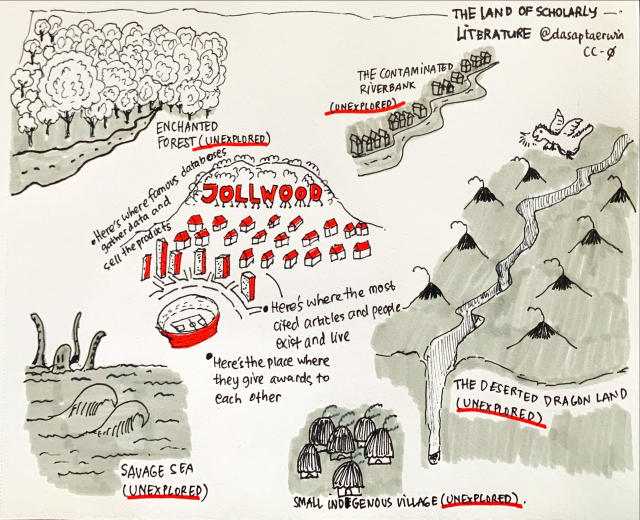 THE LAND OF SCHOLARLY —
LITERATURE @dasaptaerwin
CC-Ø
THE CONTAMINATED
RIVERBANK
(UNEXPLORED)
ENCHANTED
FOREST (UNEXPLORED)
• Here's where famous databases
gather data and
sell the products
JOLLWOOD
• Here's where the most
cited articles and people
exist and live
• Here's the place where
they give awards to
each other
THE DESERTED DRAGON LAND
(UNEXPLORED)
SAVAGE SEA
(UNEXPLORED)
SMALL INDEGENOUS VILLAGE (UNEXPLORED).